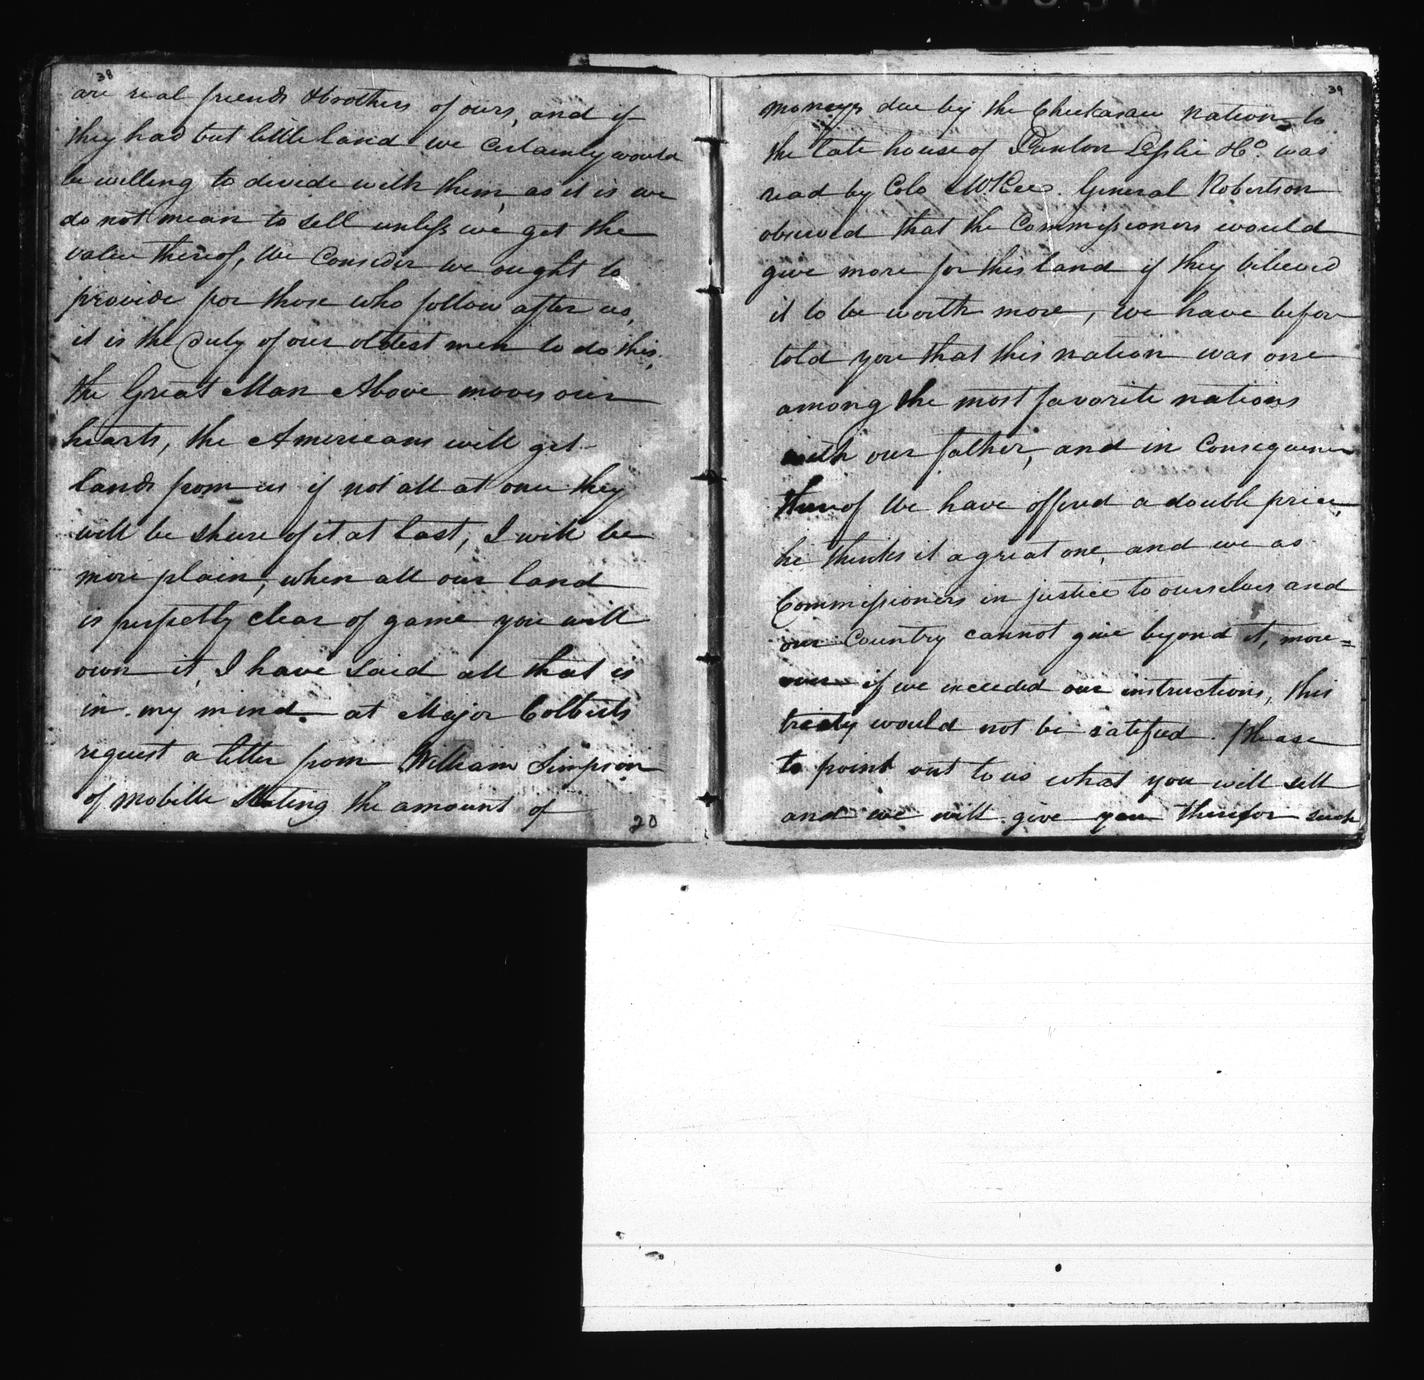 38
are real friends & brothers of ours, and if
they had but little land we certainly would
be willing to divide with them, as it is we
do not mean to sell unless we get the
value thereof, We Consider we ought to
provide for those who follow after us,
it is the duty of our oldest men to do this,
the Great Man Above moves our
hearts, the Americans will get
lands from us if not all at once they
will be shure of it at last, I will be
more plain, when all our land
is perfectly clear of game you will
own it, I have said all that is
in my mind. at Major Colberts
request a letter from William Simpson
of Mobille stating the amount of
20
39
moneys due by the Chickasaw nation to
the late house of Panton Leslie & Co. was
read by Colo McKee. General Robertson
observed that the Commissioners would
give more for this land if they believed
it to be worth more, we have before
told you that this nation was one
among the most favorite nations
with our father, and in Consequence
thereof We have offered a double price,
he thinks it a great one, and we as
Commissioners in justice to ourselves and
our Country cannot give beyond it, more=
over if we exceeded our instructions, this
treaty would not be ratefied. Please
to point out to us what you will sell
and we will give you therefor such